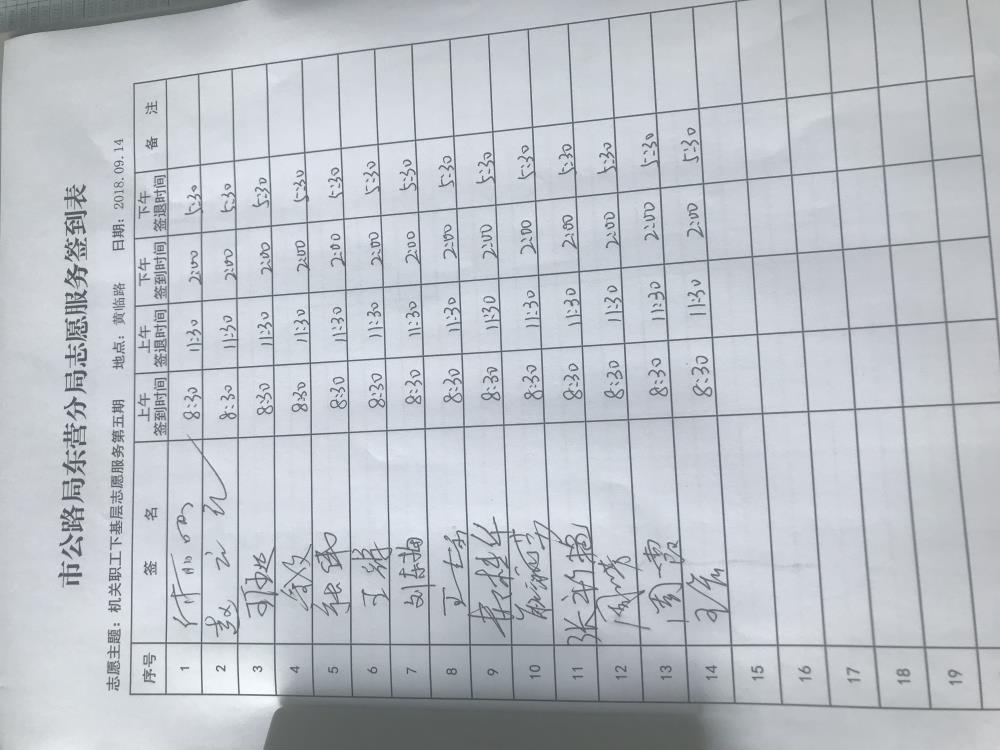 市公路局东营分局志愿服务签到表
志愿主题：机关职工下基层志愿服务第五期 地点：黄临路 日期：2018.09.14
序号 签 名 上午签到时间 上午签退时间 下午签到时间 下午签退时间 备 注
1 8:30 11:30 2:00 5:30
2 8:30 11:30 2:00 5:30
3 8:30 11:30 2:00 5:30
4 8:30 11:30 2:00 5:30
5 8:30 11:30 2:00 5:30
6 8:30 11:30 2:00 5:30
7 刘东梅 8:30 11:30 2:00 5:30
8 8:30 11:30 2:00 5:30
9 8:30 11:30 2:00 5:30
10 8:30 11:30 2:00 5:30
11 8:30 11:30 2:00 5:30
12 8:30 11:30 2:00 5:30
13 8:30 11:30 2:00 5:30
14 8:30 11:30 2:00 5:30
15
16
17
18
19